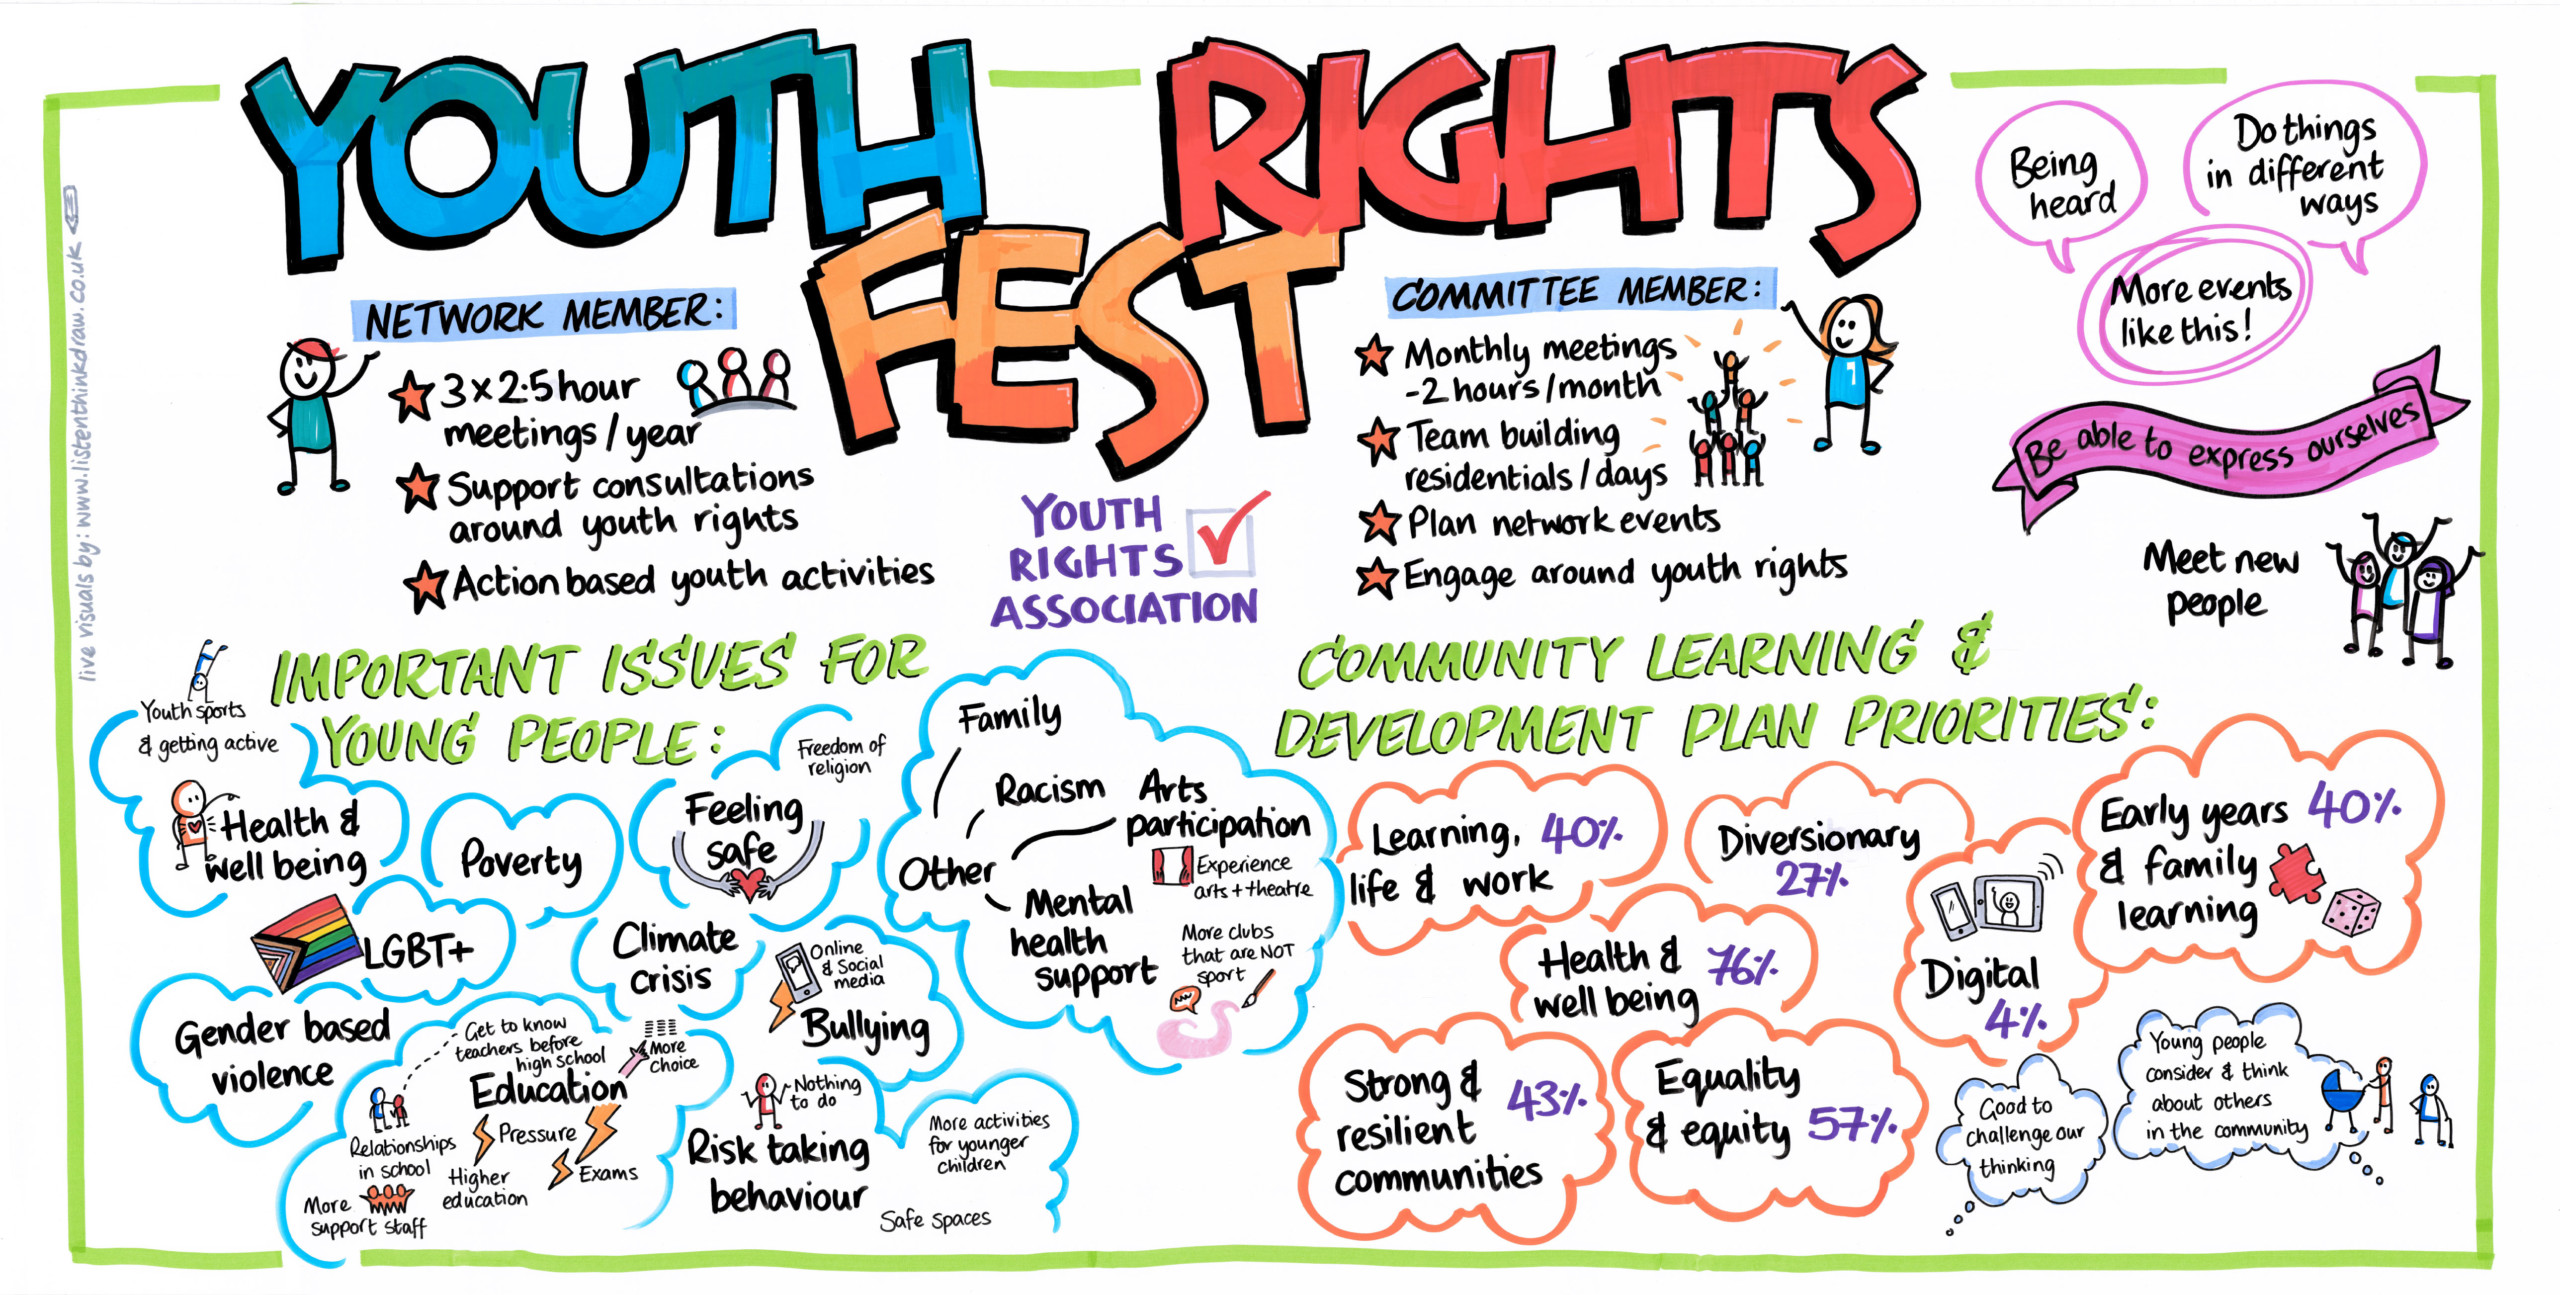 YOUTH RIGHTS
FEST
live visuals by: www.listenthinkdraw.co.uk
NETWORK MEMBER:
3x2.5 hour
meetings/year
Support consultations
around youth rights
Action based youth activities
YOUTH
RIGHTS
ASSOCIATION
COMMITTEE MEMBER:
Monthly meetings
-2 hours/month
Team building
residentials/days
Plan network events
Engage around youth rights
Being
heard
Do things
in different
ways
More events
like this!
Be able to express ourselves
Meet new
people
IMPORTANT ISSUES FOR
YOUNG PEOPLE:
Youth sports
& getting active
Health &
well being
Poverty
Feeling
safe
Freedom of
religion
LGBT+
Climate
crisis
Online
& Social
media
Bullying
Gender based
violence
Get to know
teachers before
high school
More
Choice
Education
Relationships
in school
Pressure
Higher
education
Exams
More
support staff
Nothing
to do
Risk taking
behaviour
More activities
for younger
children
Safe spaces
Family
Racism
Arts
participation
Other
Experience
arts + theatre
Mental
health
support
More clubs
that are NOT
sport
COMMUNITY LEARNING &
DEVELOPMENT PLAN PRIORITIES:
Learning, 40%
life & work
Diversionary
27%
Early years 40%
& family
learning
Health & 76%
well being
Digital
4%
Strong & 43%
resilient
communities
Equality
& equity 57%
Good to
challenge our
thinking
Young people
consider & think
about others
in the community